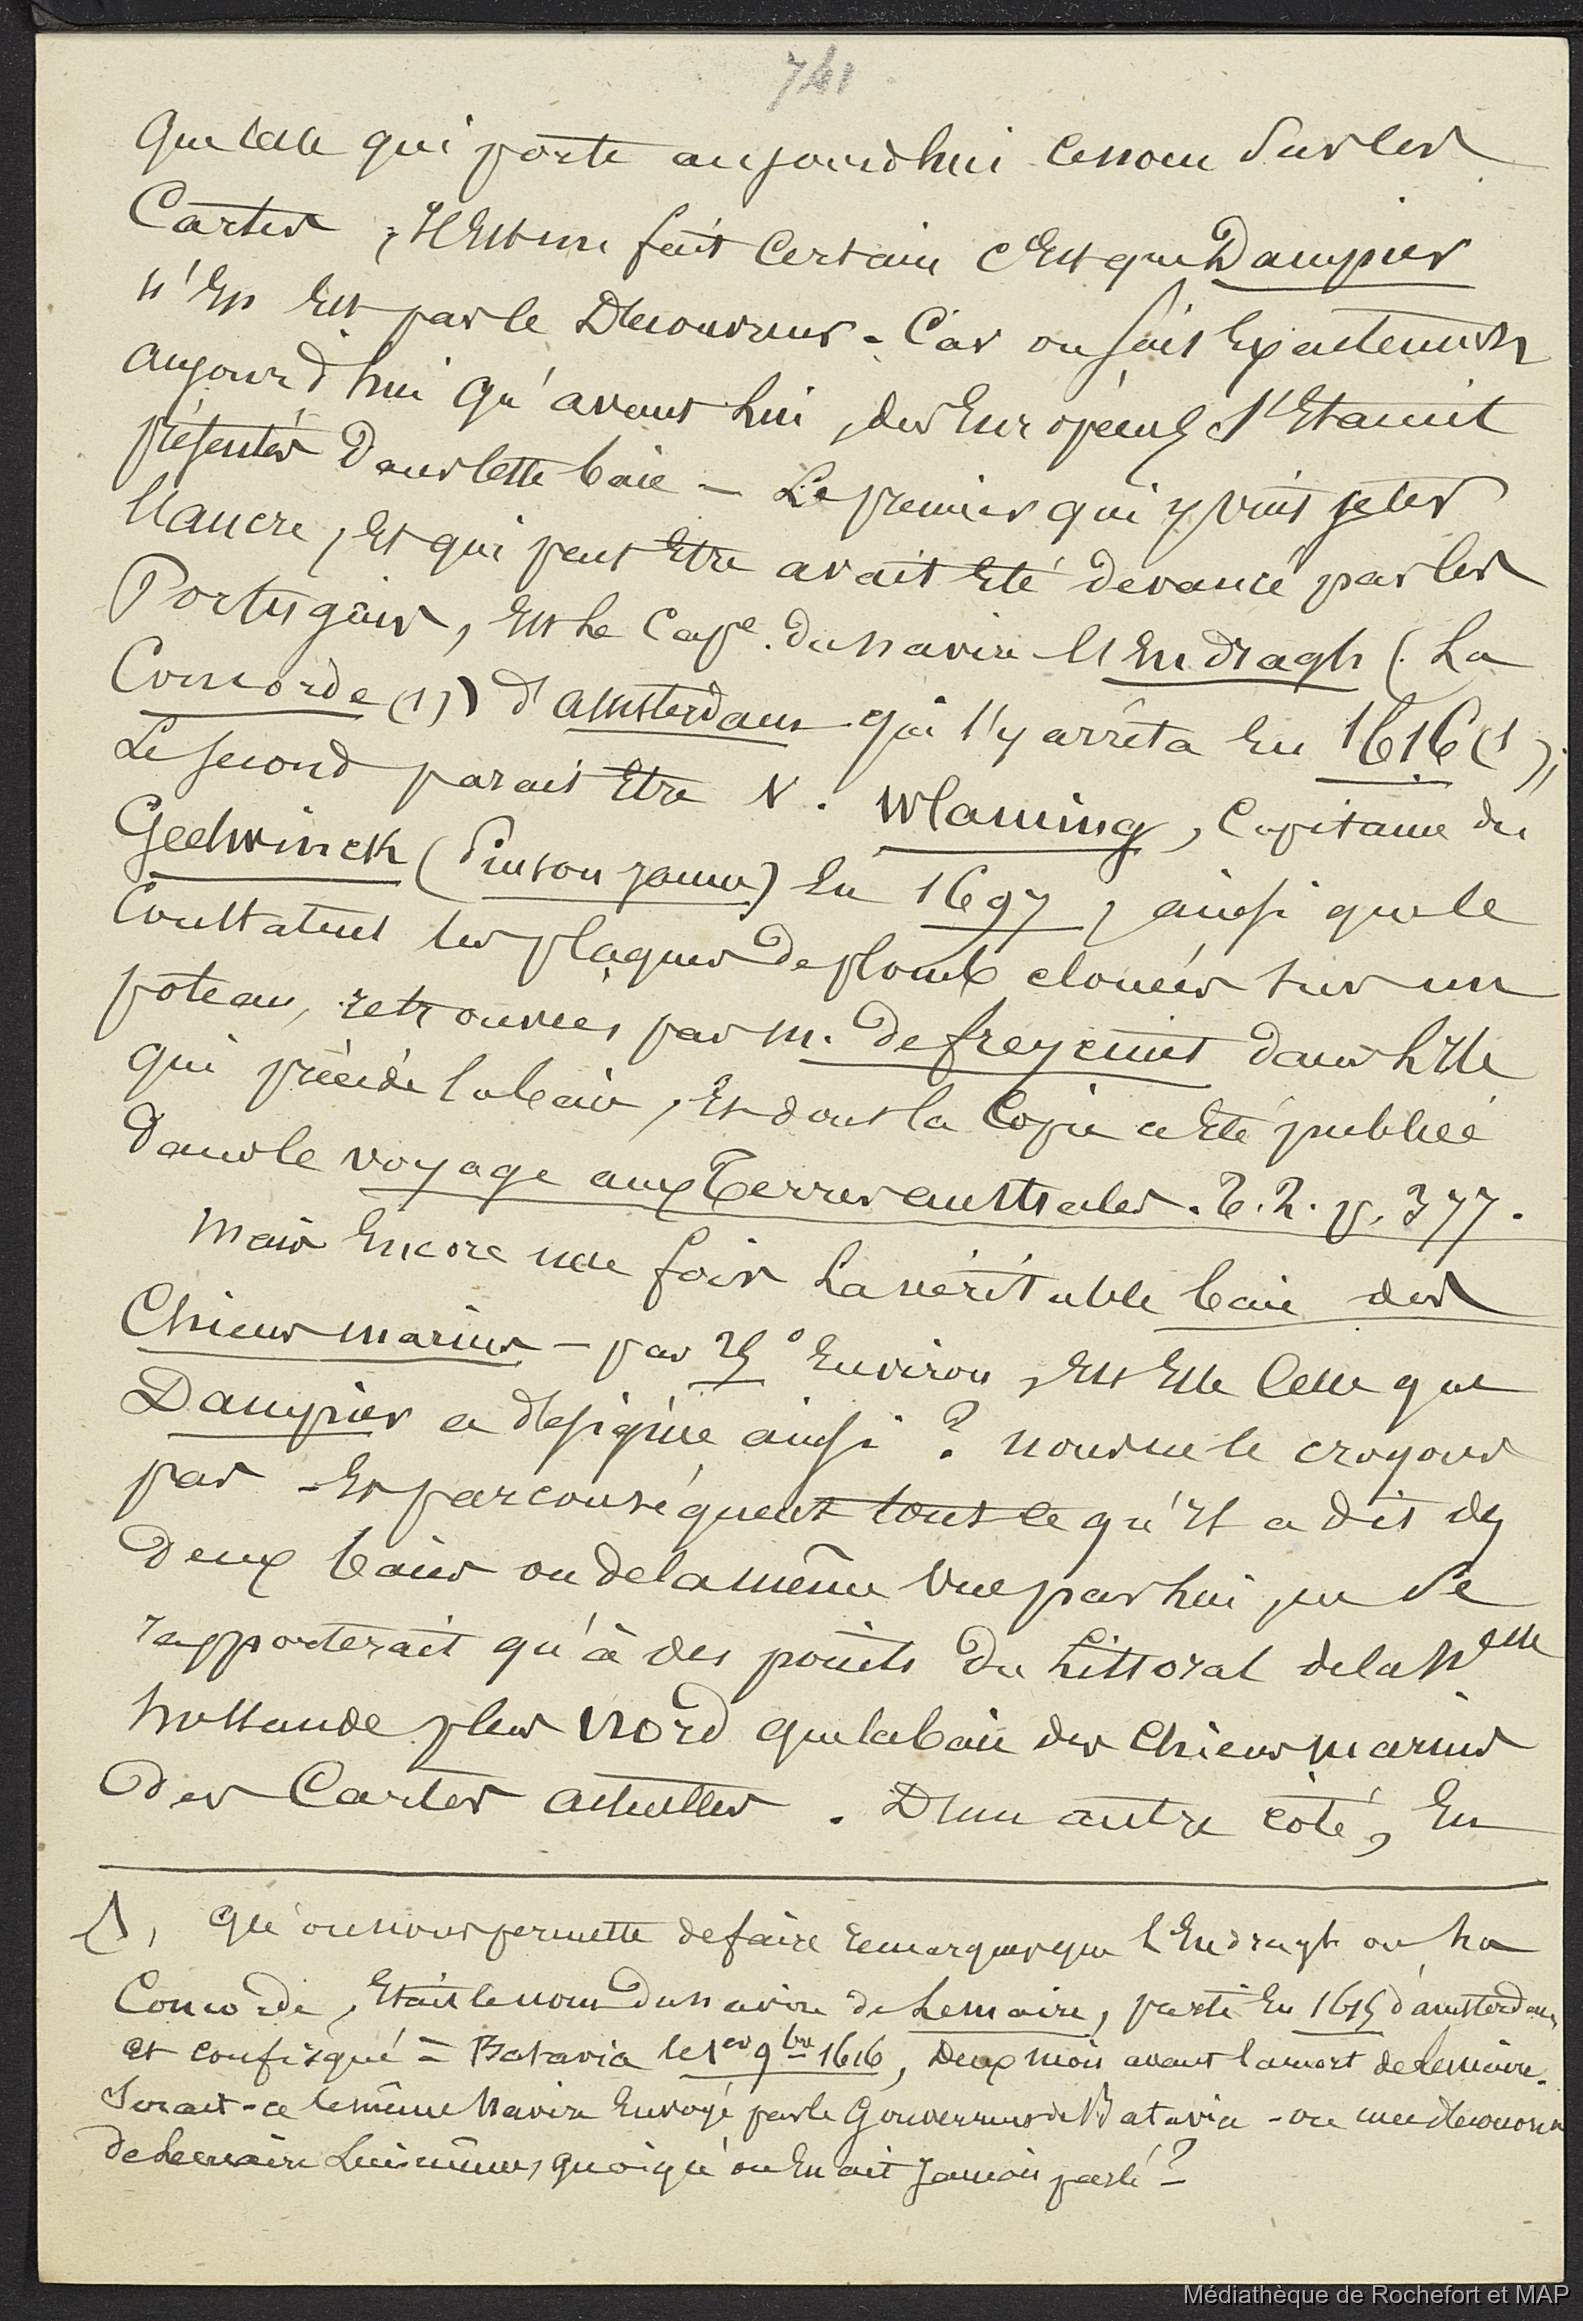 741
que celle qui porte aujourd'hui ce nom sur les
Cartes, Il Est un fait Certain c'Est que Dampier
n'En Est pas le Découvreur. Car on sait Exactement
aujourd'hui qu'avant lui, des Européens s'Etaient
présentés dans cette baie – Le premier qui y vint jeter
l'ancre, Et qui peut Etre avait Eté devancé par les
Portugais, Est le Cape. du navire l'Endragh (La
Concorde (1)) d'amsterdam qui s'y arrêta En 1616 (1);
Le second parait Etre V. Wlaming, Capitaine du
Geelwinck (Pinson jaune) En 1697, ainsi que le
constatent les plaques de plomb clouées sur un
poteau, retrouvées par m. de freycinet dans l'Ile
qui précède la baie, Et dont la Copie a Eté publiée
dans le voyage aux Terres australes. T. 2. p. 377.
Mais Encore une fois La véritable baie des
Chiens marins – par 25° Environ, Est Elle Celle que
Dampier a désignée ainsi ? nous ne le croyons
pas – Et par conséquent tout ce qu'Il a dit des
Deux baies ou de la même vue par lui, ne se
rapporterait qu'à des points du Littoral de la Nelle
hollande plus Nord que la baie des Chiens marins
des Cartes actuelles. D'un autre côté, En
(1), qu'on nous permette de faire remarquer que l'Endragh ou La
Concorde, Etait le nom du navire de Lemaire, parti En 1615 d'amsterdam,
et confisqué à Batavia le 1er 9bre 1616, Deux mois avant la mort de Lemaire.
Serait-ce le même Navire Envoyé par le Gouverneur de Batavia – ou une découverte
de Lemaire Lui même, quoiqu'on En ait Jamais parlé ? –
Médiathèque de Rochefort et MAP